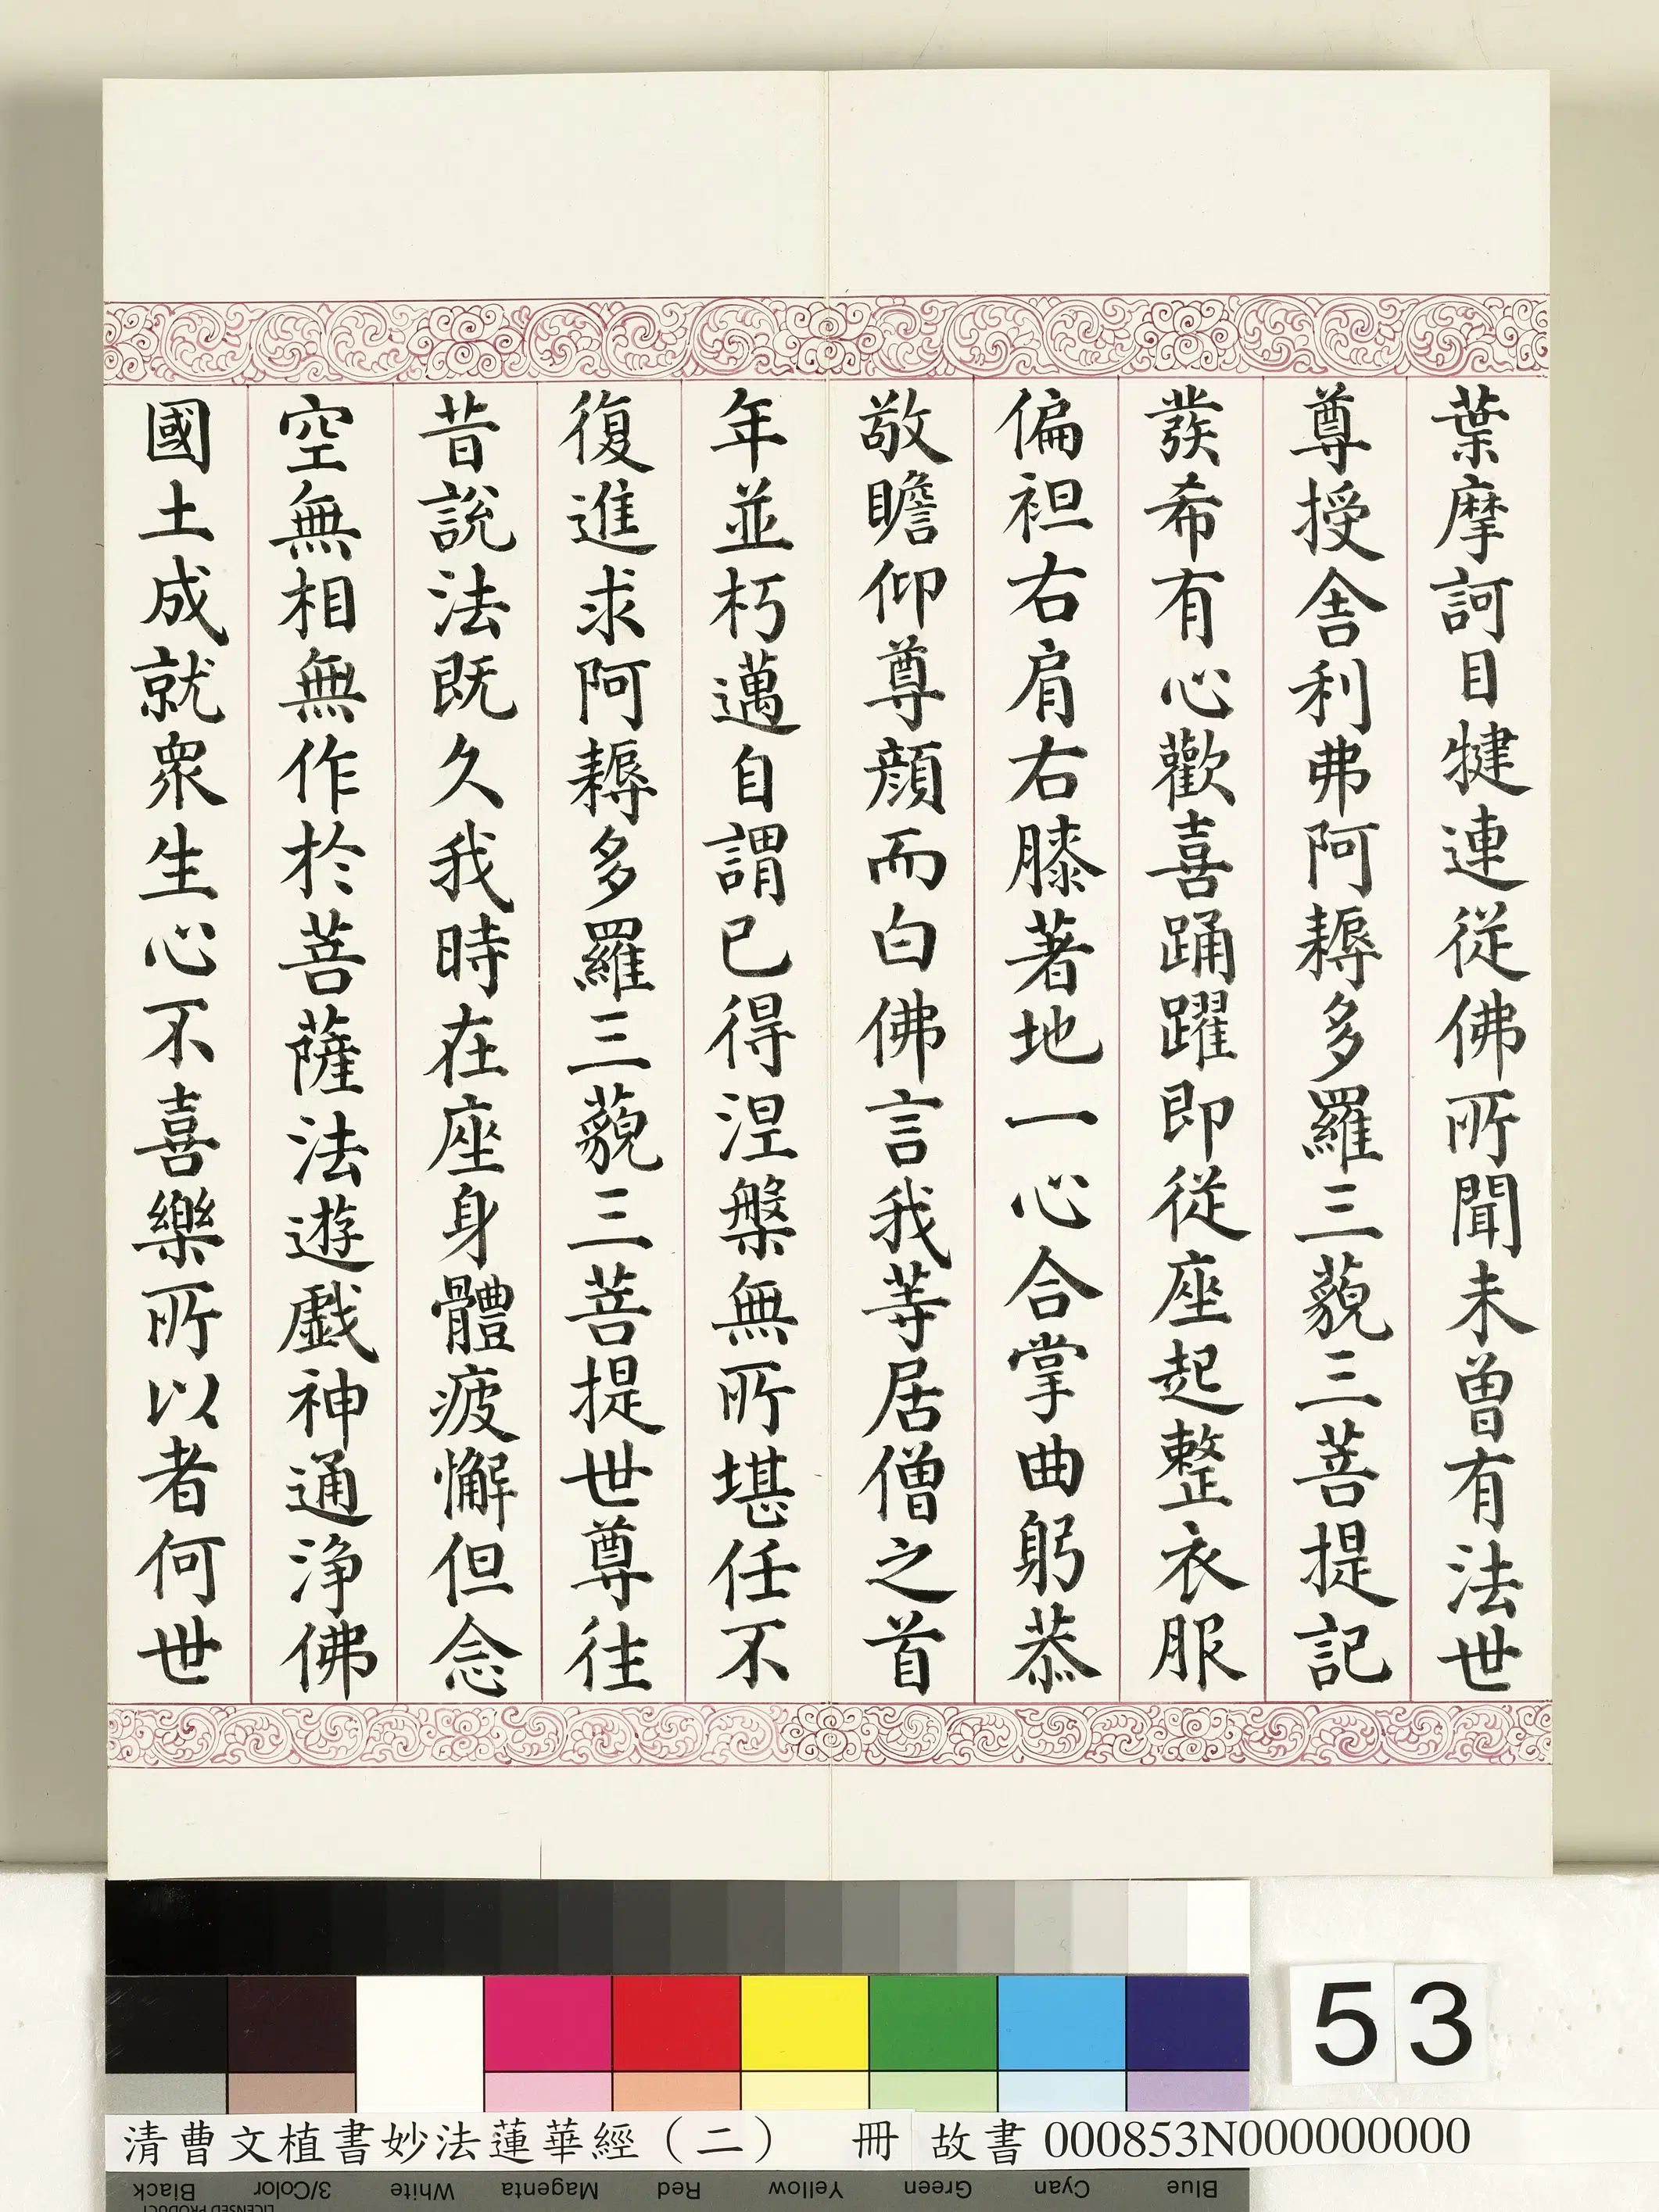 葉摩訶目犍連從佛所聞未曾有法世
尊授舍利弗阿耨多羅三藐三菩提記
發希有心歡喜踊躍即從座起整衣服
偏袒右肩右膝著地一心合掌曲躬恭
敬瞻仰尊顏而白佛言我等居僧之首
年並朽邁自謂已得涅槃無所堪任不
復進求阿耨多羅三藐三菩提世尊往
昔說法既久我時在座身體疲懈但念
空無相無作於菩薩法遊戲神通淨佛
國土成就眾生心不喜樂所以者何世
53
清曹文植書妙法蓮華經（二） 冊 故書 000853N000000000
Black 3/Color White Magenta Red Yellow Green Cyan Blue
LICENSED PRODUCT